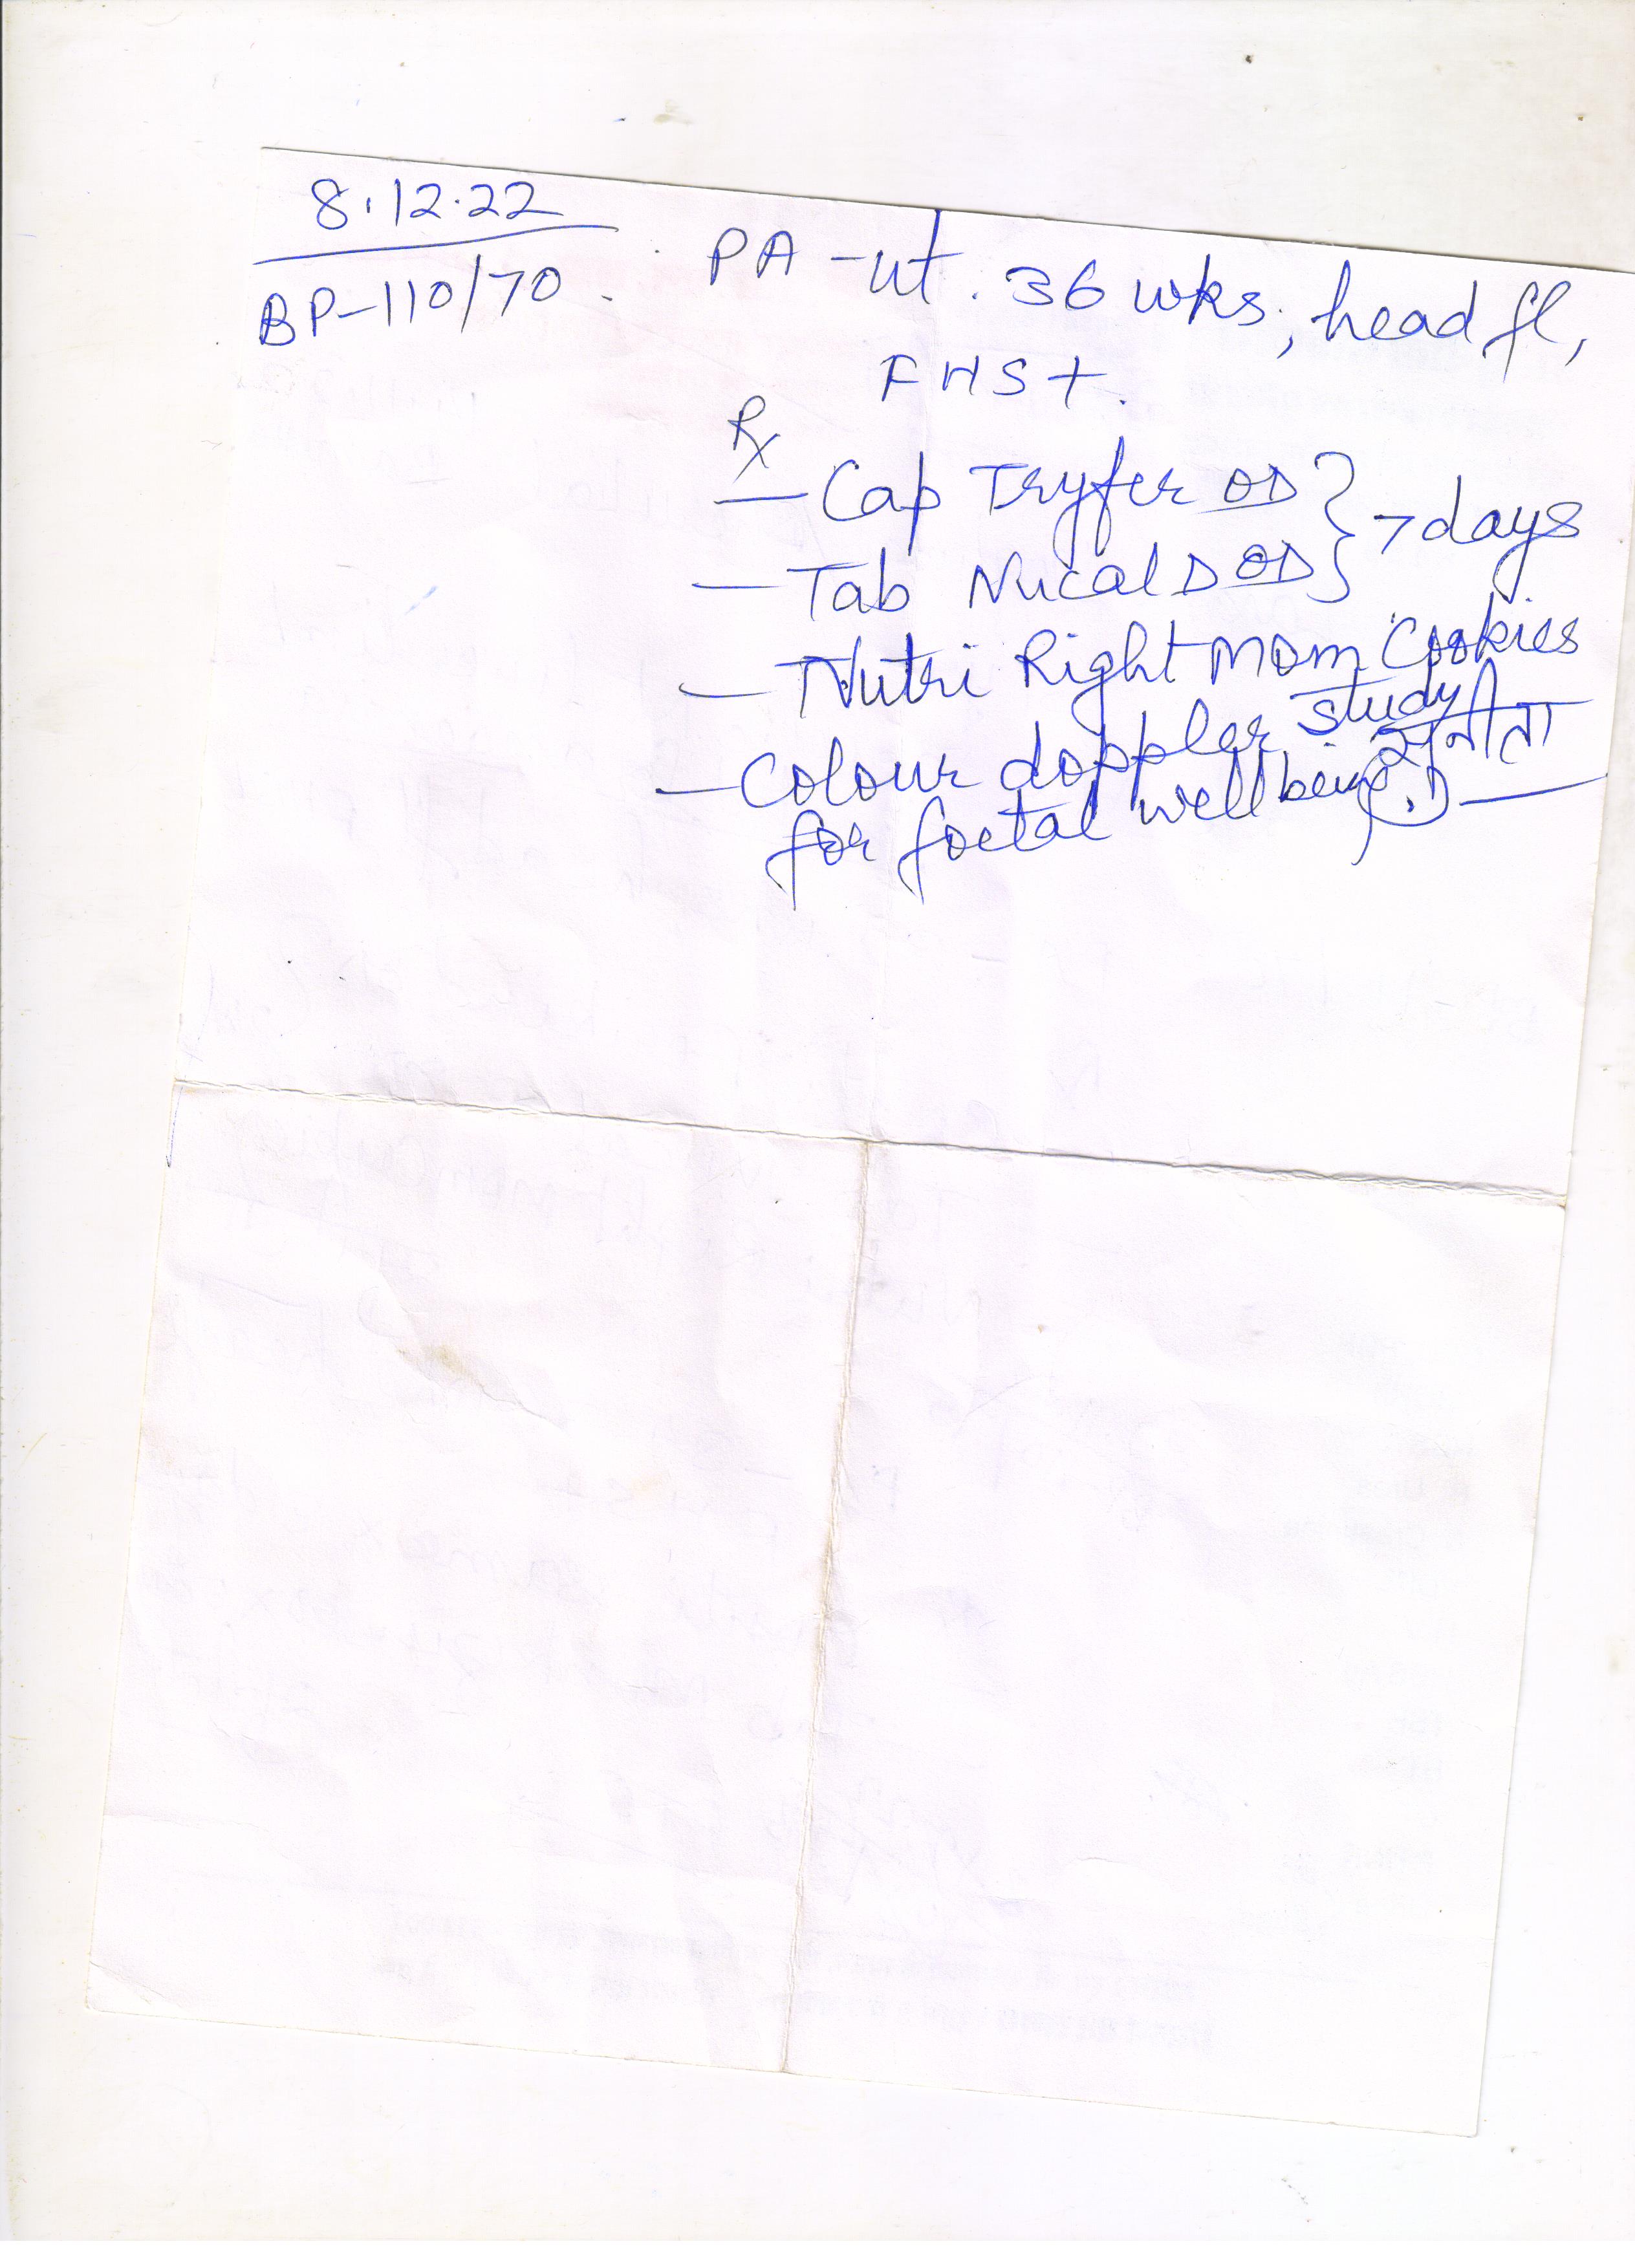 8.12.22
BP-110/70. PA-ut. 36 wks., head fl,
FHS+.
Rx
- Cap Tryfer OD } 7 days
- Tab Nucal D OD
- Nutri Right Mom Cookies
- Colour doppler study
for foetal well being. सुनीता